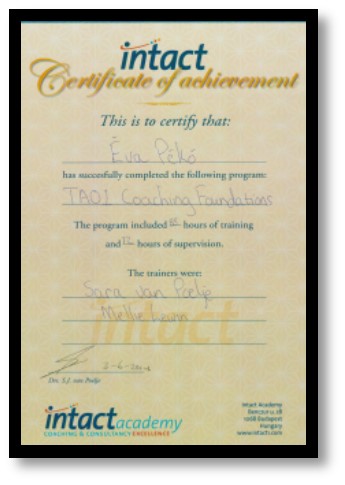 intact
Certificate of achievement
This is to certify that:
Éva Pékó
has succesfully completed the following program:
TAOI Coaching Foundations
The program included hours of training
and hours of supervision.
The trainers were:
Sara van Poelje
Mellie
intact
Drs. S.J. van Poelje
intact academy
COACHING & CONSULTANCY EXCELLENCE
Intact Academy
Benczur u. 
Budapest
Hungary
www.intacth.com